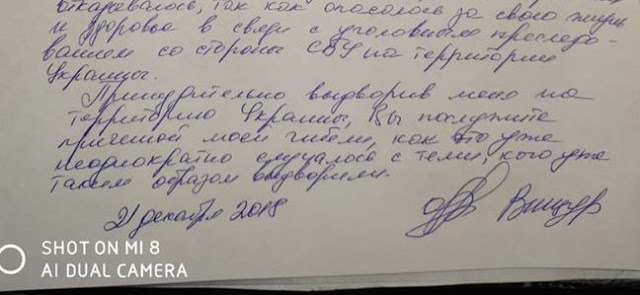 отказевалось, так как опасалось за свою жизнь
и здоровье в связи с уголовным преследо-
ванием со стороны СБУ на территории
Украины.
Принудительно выдворив меня на
территорию Украины, Вы послужите
причиной моей гибели, как это уже
неоднократно случалось с теми, кого уже
таким образом выдворили.
21 декабря 2018
SHOT ON MI 8
AI DUAL CAMERA